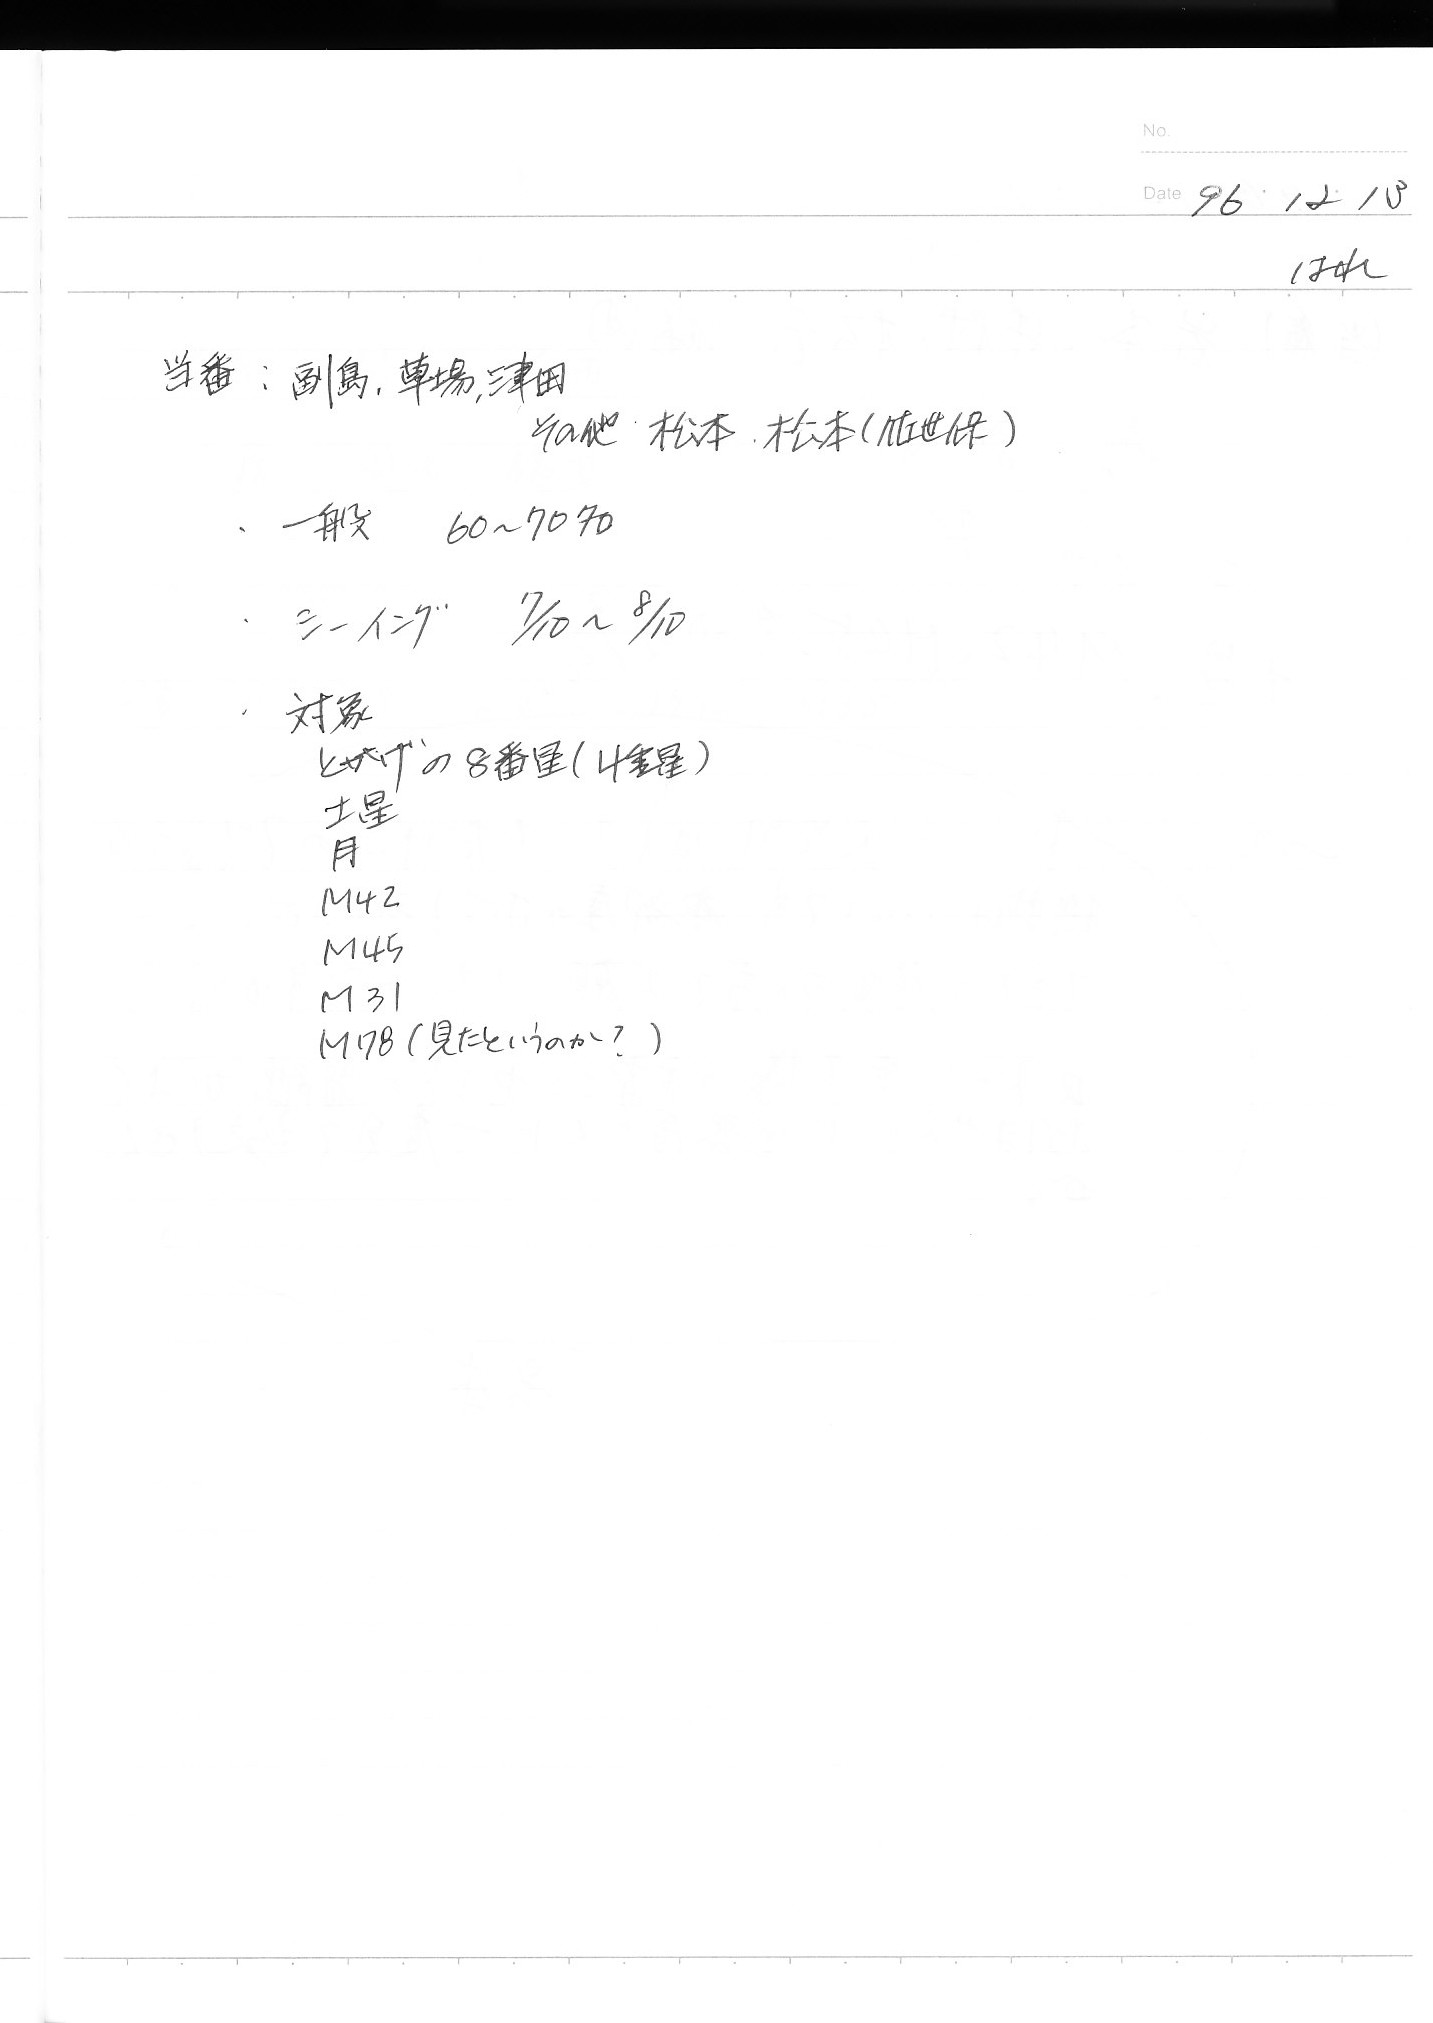 No.
Date 96・12・13
はれ
当番：副島，草場，津田
その他・松本．松本（佐世保）
・一般　60～70名
・シーイング　7/10～8/10
・対象
とかげの8番星（4重星）
土星
月
M42
M45
M31
M78（見たというのか？）